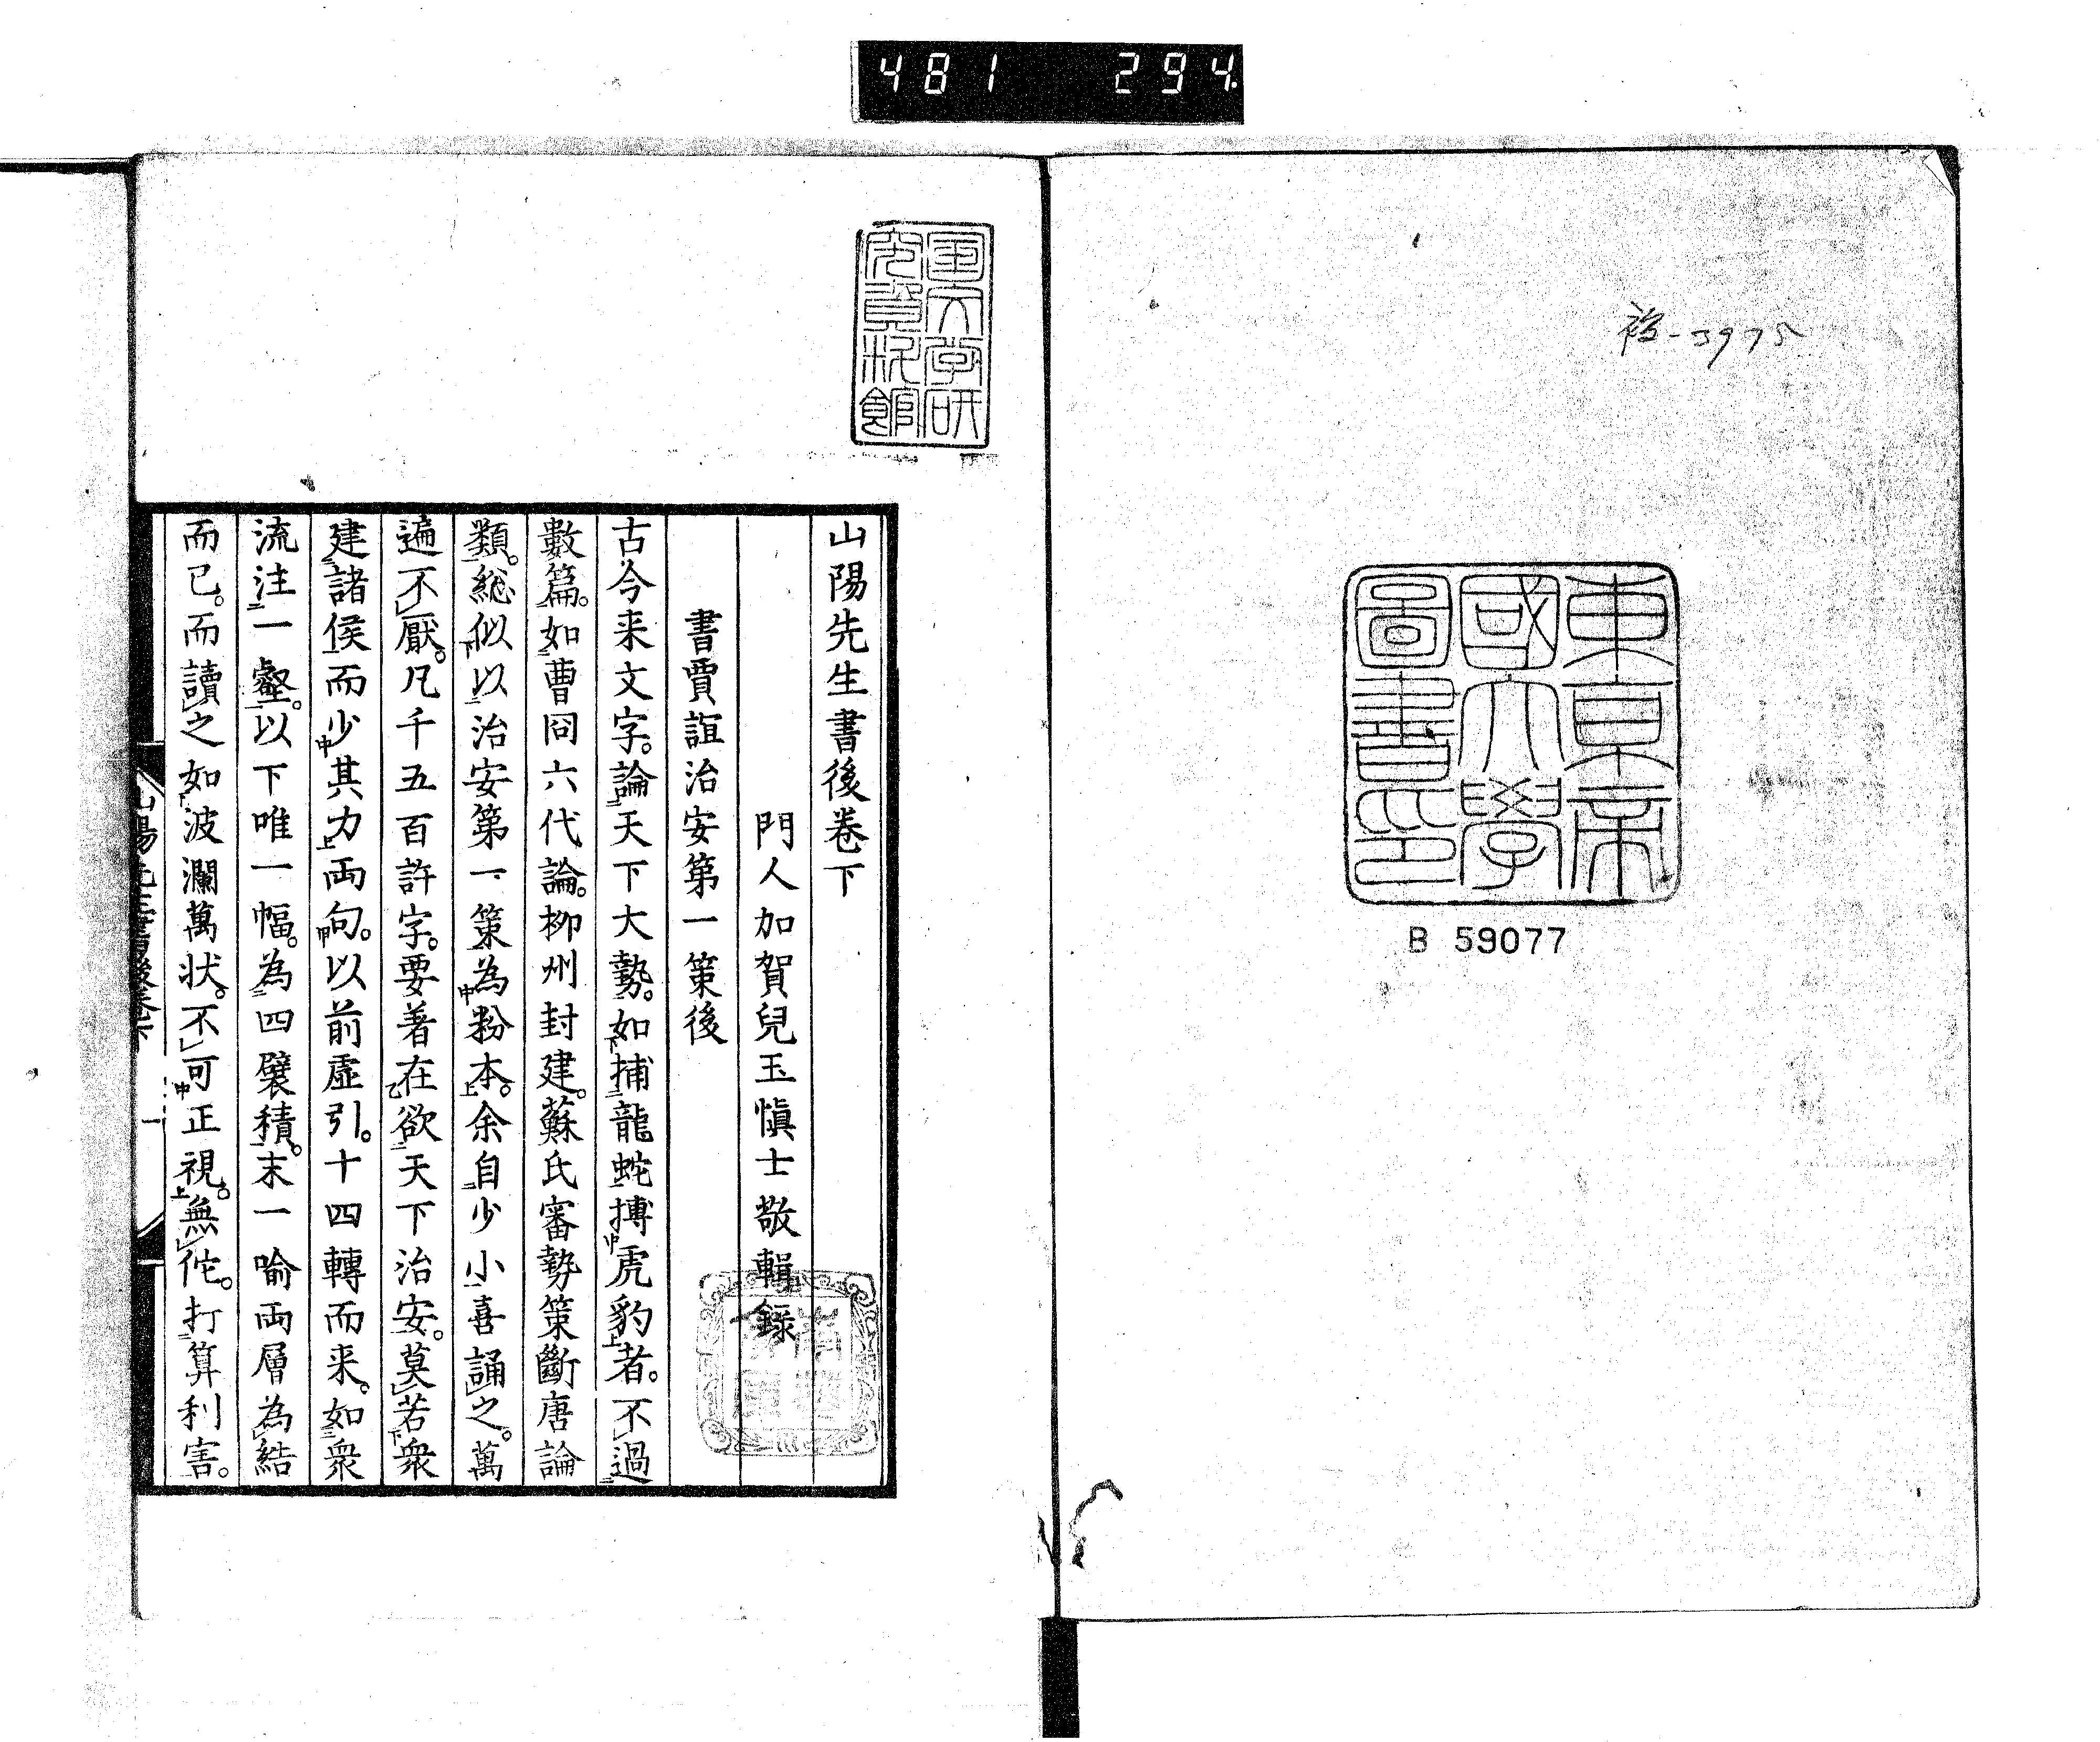 481 294.
東京帝
國大學
圖書印
B 59077
国文学研
究資料館
山陽先生書後卷下
門人加賀兒玉愼士敬輯錄
書賈誼治安第一策後
古今来文字。論天下大勢。如捕龍蛇搏虎豹者。不過
數篇。如曹冏六代論。柳州封建。蘇氏審勢策斷唐論
類。総似以治安第一策為粉本。余自少小喜誦之。萬
遍不厭。凡千五百許字。要著在欲天下治安。莫若衆
建諸侯而少其力両句。以前虛引。十四轉而来。如衆
流注一壑。以下唯一幅。為四襞積。末一喻両層為結
而已。而讀之如波瀾萬状。不可正視。無佗。打算利害。
山陽先生書後卷下
一